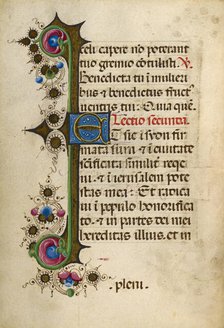 celi capere nō poterant
tuo gremio cōtulisti. R.
Benedicta tu ī mulieri
bus et benedictus fruct'
uentris tui: Quia quē.
Lectio secunda.
Et sic ī syon fir
mata sum et ī ciuitate
scīficata similit' requie
ui et ī ierusalem potes
tas mea: Et radica
ui ī populo honorifica
to et in partes dei mei
hereditas illius, et in
pleni